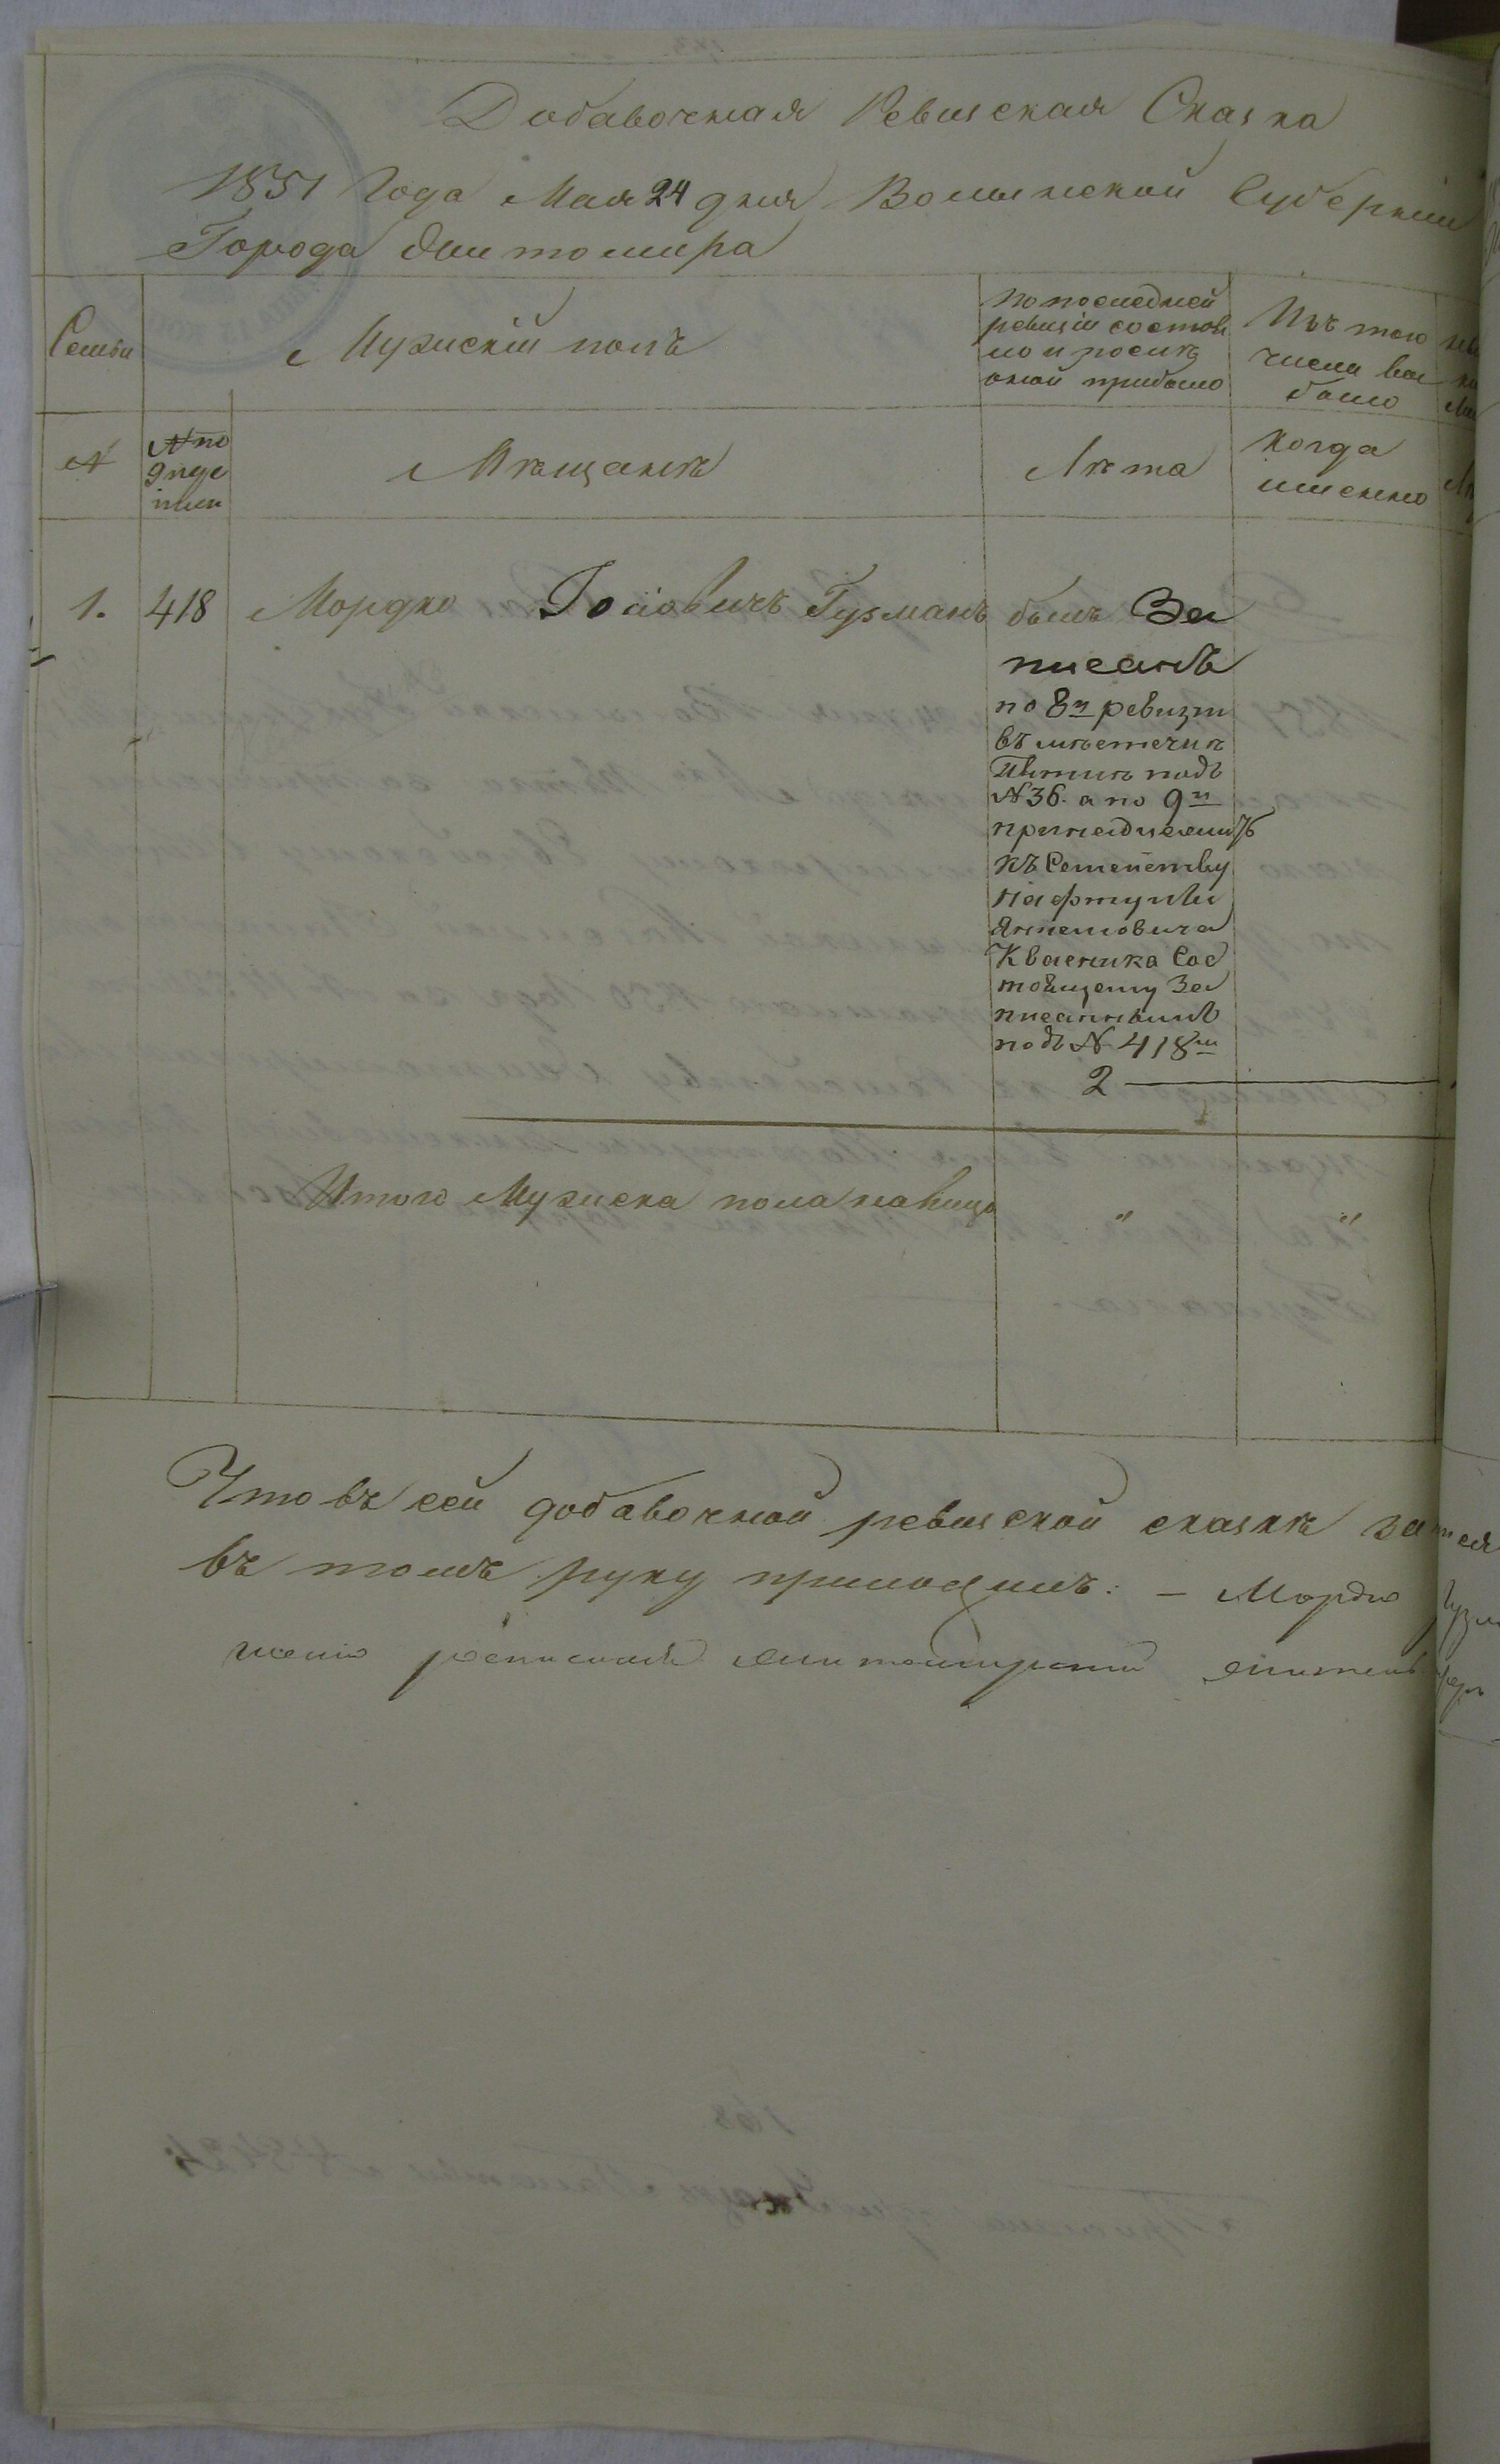 Добавочная Ревизская Сказка
1851 Года Мая 24 дня Волынской Губернии
Города Житомира
Семьи
Мужскій полъ
По последней
ревизіи состоя
ло и после
оной прибыло
Изъ того
числа вы
было
№
№ по
Мѣщанѣ
Лѣта
Когда
именно
1.
418
Мордко Іосіовичъ Гузманъ
былъ За
писанъ
по 8й ревизіи
въ мѣстечкѣ
подъ
№ 36. а по 9й
къ Семейству
Нафтулы
Янкелевича
Квасника Сос
тоящему За
писаннымъ
подъ № 418м
2
Итого Мужска пола налицо
"
"
Что въ сей добавочной ревизской сказкѣ
въ томъ руку приложилъ: - Мордко
росписался житомирскій житель